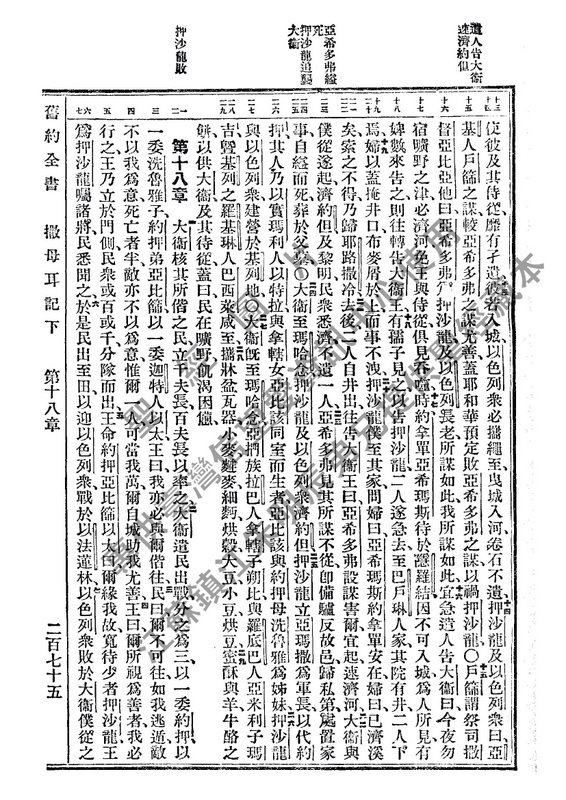 遣人告大衞
速濟約但
亞希多弗縊
死
押沙龍追襲
大衞
押沙龍敗
十三 使彼及其侍從靡有孑遺彼若入城以色列衆必攜繩至曳城入河卷石不遺十四押沙龍及以色列衆曰亞
十五 基人戶篩之謀較亞希多弗之謀尤善蓋耶和華預定敗亞希多弗之謀以禍押沙龍〇十五戶篩謂祭司撒
十六 督亞比亞他曰亞希多弗爲押沙龍及以色列長老所謀如此我所謀如此宜急遣人告大衞曰今夜勿
十七 宿曠野之津必濟河免王與侍從俱見吞噬時約拿單亞希瑪斯待於隱羅結因不可入城爲人所見有
十八 婢數來告之則往轉告大衞王有孺子見之以告押沙龍二人遂急去至巴戶琳人家其院有井二人下
十九 焉婦以蓋掩井口布麥屑於上而事不洩押沙龍僕至其家問婦曰亞希瑪斯約拿單安在婦曰已濟溪
二一 矣索之不得乃歸耶路撒冷去後二人自井出往告大衞王曰亞希多弗設謀害爾宜起速濟河大衞與
二三 僕從遂起濟約但及黎明民衆悉濟不遺一人亞希多弗見其所謀不從卽備驢反故邑歸私第處置家
二四 事自縊而死葬於父墓〇大衞至瑪哈念押沙龍及以色列衆濟約但押沙龍立亞瑪撒爲軍長以代約
二六 押其人乃以實瑪利人以特拉與拿轄女亞比該同室而生者亞比該與約押母洗魯雅爲姊妹押沙龍
二七 與以色列衆建營於基列地〇大衞旣至瑪哈念亞捫族拉巴人拿轄子朔比與羅底巴人亞米利子瑪
二八 吉曁基列之羅基琳人巴西萊咸至攜牀盆瓦器小麥麰麥細麪烘穀大豆小豆烘豆蜜酥與羊牛酪之
二九 餅以供大衞及其侍從蓋曰民在曠野飢渴困憊
第十八章
一二 大衞核其所偕之民立千夫長百夫長以率之大衞遣民出戰分之爲三以一委約押以
三 一委洗魯雅子約押弟亞比篩以一委迦特人以太王曰我亦必與爾偕往民曰爾不可往如我逃遁敵
四 不以我爲意死亡者半敵亦不以爲意惟爾一人可當我萬爾自城助我尤善王曰爾所視爲善者我必
五 行之王乃立於門側民衆或百或千分隊而出王命約押亞比篩以太曰爾緣我故寬待少者押沙龍王
六七 爲押沙龍囑諸將民悉聞之於是民出至田以迎以色列衆戰於以法蓮林以色列衆敗於大衞僕從之
舊約全書 撒母耳記下 第十八章 二百七十五